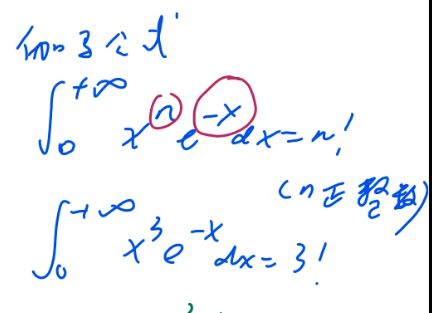 ∫₀^{+∞} xⁿ e^{-x} dx = n!
(n正整数)
∫₀^{+∞} x³ e^{-x} dx = 3!